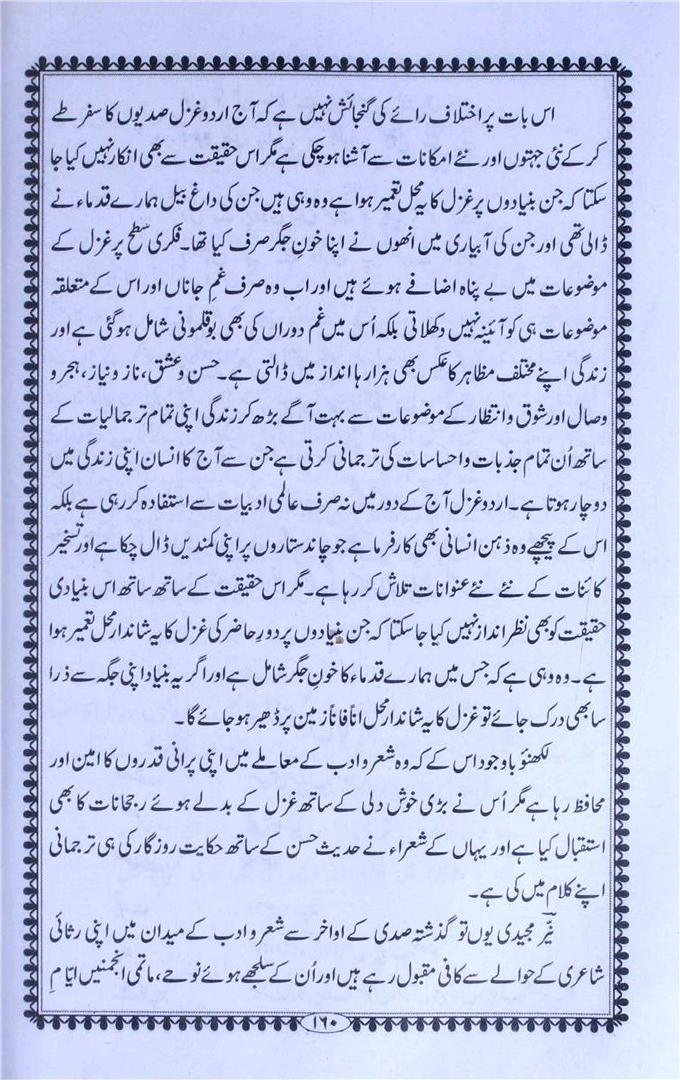 اس بات پر اختلاف رائے کی گنجائش نہیں ہے کہ آج اردو غزل صدیوں کا سفر طے
کرکے نئی جہتوں اور نئے امکانات سے آشنا ہوچکی ہے مگر اس حقیقت سے بھی انکار نہیں کیا جا
سکتا کہ جن بنیادوں پر غزل کا یہ محل تعمیر ہوا ہے وہ وہی ہیں جن کی داغ بیل ہمارے قدماء نے
ڈالی تھی اور جن کی آبیاری میں انھوں نے اپنا خونِ جگر صرف کیا تھا۔ فکری سطح پر غزل کے
موضوعات میں بے پناہ اضافے ہوئے ہیں اور اب وہ صرف غمِ جاناں اور اس کے متعلقہ
موضوعات ہی کو آئینہ نہیں دکھلاتی بلکہ اُس میں غم دوراں کی بھی بوقلمونی شامل ہوگئی ہے اور
زندگی اپنے مختلف مظاہر کا عکس بھی ہزارہا انداز میں ڈالتی ہے۔ حسن و عشق، ناز و نیاز، ہجر و
وصال اور شوق و انتظار کے موضوعات سے بہت آگے بڑھ کر زندگی اپنی تمام تر جمالیات کے
ساتھ اُن تمام جذبات و احساسات کی ترجمانی کرتی ہے جن سے آج کا انسان اپنی زندگی میں
دوچار ہوتا ہے۔ اردو غزل آج کے دور میں نہ صرف عالمی ادبیات سے استفادہ کررہی ہے بلکہ
اس کے پیچھے وہ ذہن انسانی بھی کارفرما ہے جو چاند ستاروں پر اپنی کمندیں ڈال چکا ہے اور تسخیر
کائنات کے نئے نئے عنوانات تلاش کررہا ہے۔ مگر اس حقیقت کے ساتھ ساتھ اس بنیادی
حقیقت کو بھی نظر انداز نہیں کیا جاسکتا کہ جن بنیادوں پر دورِ حاضر کی غزل کا یہ شاندار محل تعمیر ہوا
ہے۔ وہ وہی ہے کہ جس میں ہمارے قدماء کا خونِ جگر شامل ہے اور اگر یہ بنیاد اپنی جگہ سے ذرا
سا بھی درک جائے تو غزل کا یہ شاندار محل اناً فاناً زمین پر ڈھیر ہوجائے گا۔
لکھنؤ باوجود اس کے کہ وہ شعر و ادب کے معاملے میں اپنی پرانی قدروں کا امین اور
محافظ رہا ہے مگر اُس نے بڑی خوش دلی کے ساتھ غزل کے بدلے ہوئے رجحانات کا بھی
استقبال کیا ہے اور یہاں کے شعراء نے حدیث حسن کے ساتھ حکایت روزگار کی ہی ترجمانی
اپنے کلام میں کی ہے۔
نیّر مجیدی یوں تو گذشتہ صدی کے اواخر سے شعر و ادب کے میدان میں اپنی رثائی
شاعری کے حوالے سے کافی مقبول رہے ہیں اور اُن کے سلجھے ہوئے نوحے، ماتمی انجمنیں ایّامِ
۱۶۰